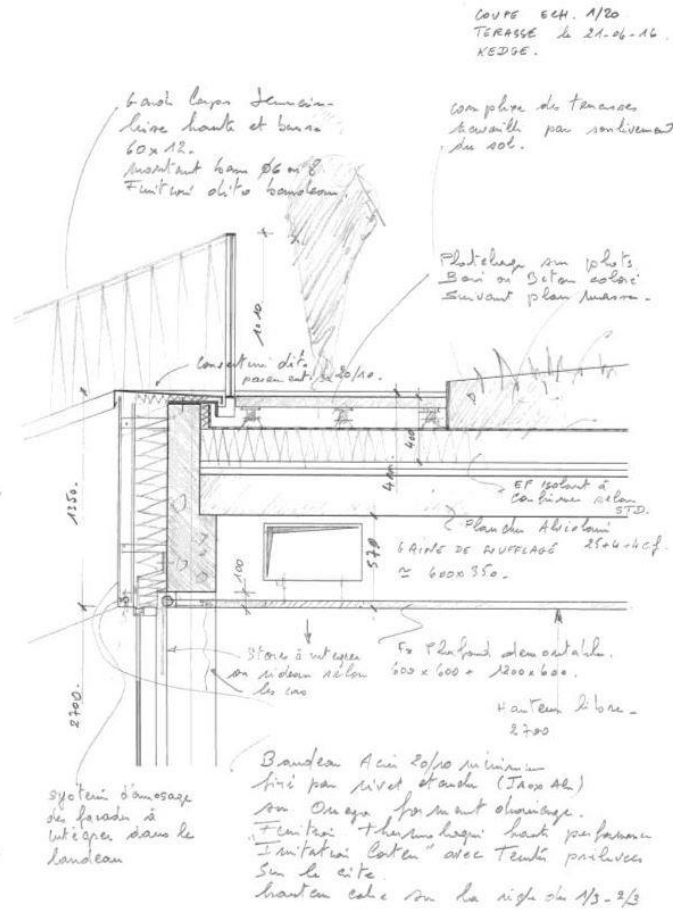 COUPE ECH. 1/20
TERASSE le 21-06-16
KEDGE.
Garde Corps
lisse haute et basse
60 x 12.
montant barre Ø6 ou 8
Finition dito bandeau.
complexe des terrasses
travaillé par soulèvement
du sol.
Platelage sur plots
Bois ou Béton coloré
Suivant plan masse.
1010
Couvertine dito
parement 20/10.
400
EP isolant à
confirmer selon
STD.
Plancher Alvéolaire
25+4+4cf.
1350.
570
GAINE DE SOUFFLAGE
≈ 600x350.
100
Stores à intégrer
ou rideau selon
les cas
Fx Plafond démontable.
600 x 600 + 1200 x 600.
Hauteur libre
2700
2700.
Système d'amosage
des façades à
intégrer dans le
bandeau
Bandeau Acier 20/10 minimum
fixé par rivet étanche (Inox Alu)
sur Omega formant drainage.
Finition Thermolaqué haute performance
"Imitation Corten" avec Teinte prélevée
Sur le site.
hauteur calée sur la règle des 1/3 - 2/3